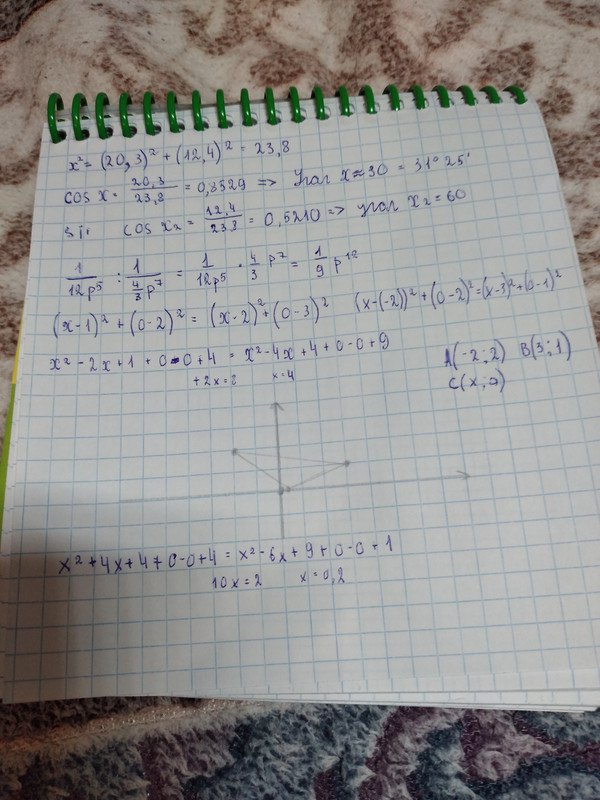 x² = (20,3)² + (12,4)² = 23,8
cos x = 20,3/23,8 = 0,8529 => Угол x ≈ 30 = 31° 25'
si cos x₂ = 12,4/23,8 = 0,5210 => угол x₂ = 60
1/12p⁵ : 1/(4/3 p⁷) = 1/12p⁵ · 4/3 p⁷ = 1/9 p¹²
(x-1)² + (0-2)² = (x-2)² + (0-3)² (x-(-2))² + (0-2)² = (x-3)² + (0-1)²
x² - 2x + 1 + 0-0+4 = x² - 4x + 4 + 0-0+9
+2x = 8 x = 4
A(-2; 2) B(3; 1)
C(x; 0)
x² + 4x + 4 + 0-0+4 = x² - 6x + 9 + 0-0+1
10x = 2 x = 0,2